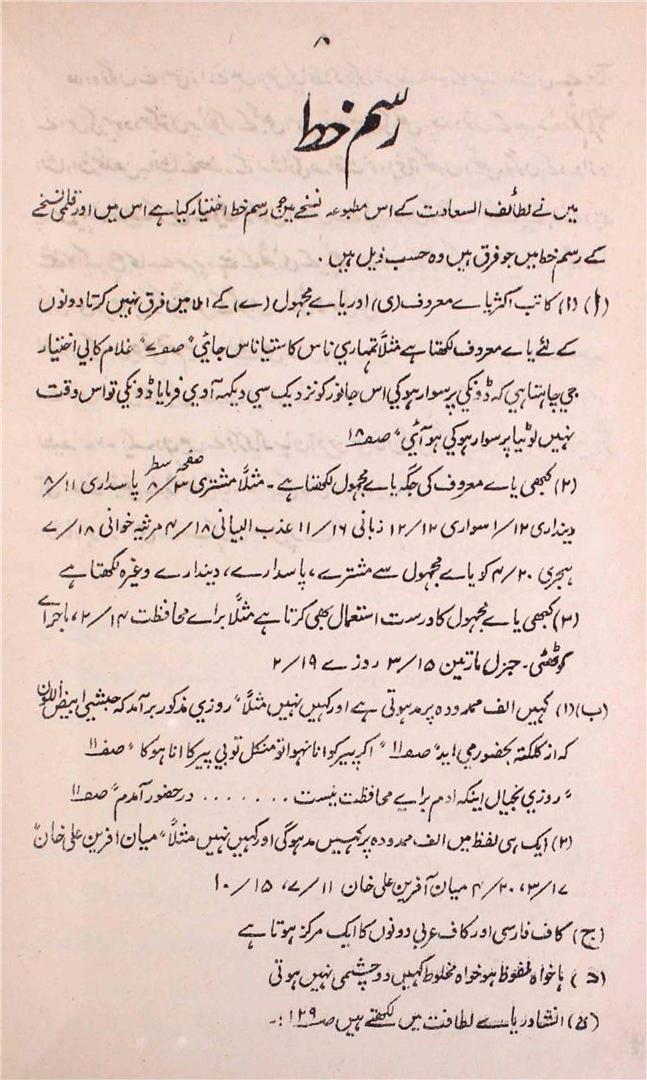 ۸
رسم خط
میں نے لطائف السعادت کے اس مطبوعہ نسخے میں جو رسم خط اختیار کیا ہے اس میں اور قلمی نسخے
کے رسم خط میں جو فرق ہیں وہ حسب ذیل ہیں ۔
(۱) (۱) کاتب اکثر یاے معروف (ی) اور یاے مجہول (ے) کے املا میں فرق نہیں کرتا دونوں
کے لئے یاے معروف لکھتا ہے مثلاً تمہاری ناس کا ستیاناس جائی" صفـ۷ " غلام کا بی اختیار
جی چاہتا ہی کہ ڈونکی پر سوار ہوکی اس جانور کو نزدیک سی دیکہہ آوی فرمایا ڈونکی تو اس وقت
نہیں لوٹیا پر سوار ہوکی ہو آئی" صفـ۱۸
(۲) کبھی یاے معروف کی جگہ یاے مجہول لکھتا ہے ۔ مثلاً مشتری صفحہ ۸/۳ سطر پاسداری ۸/۱۱
دینداری ۱/۱۲ سواری ۱۲/۱۲ زبانی ۱۱/۱۶ عذب البیانی ۴/۱۸ مرثیہ خوانی ۷/۱۸
ہجری ۴/۲۰ کو یاے مجہول سے مشترے، پاسدارے، دیندارے وغیرہ لکھتا ہے
(۳) کبھی یاے مجہول کا درست استعمال بھی کرتا ہے مثلاً براے محافظت ۲/۱۴، باجراے
گوٹھٹی ۔ جنرل مارٹین ۳/۱۵ روزے ۲/۱۹
(ب) (۱) کہیں الف ممدودہ پر مد ہوتی ہے اور کہیں نہیں مثلاً " روزی مذکور برآمد کہ حبشی ابیض اللون
کہ از کلکتہ بحضور می اید" صفـ۱۱ " اکر پیر کو انا نہوا تو منکل تو بی پیر کا انا ہوکا " صفـ۱۱
" روزی بخیال اینکہ ادم براے محافظت نیست ....... در حضور آمدم" صفـ۱۱
(۲) ایک ہی لفظ میں الف ممدودہ پر کہیں مد ہوگی اور کہیں نہیں مثلاً "میان افرین علی خان"
۳/۱۷، ۴/۲۰ میان آفرین علی خان ۷/۱۱، ۱۰/۱۵
(ج) گاف فارسی اور کاف عربی دونوں کا ایک مرکز ہوتا ہے
(د) ہا خواہ ملفوظ ہو خواہ مخلوط کہیں دو چشمی نہیں ہوتی
(ہ) انشا دریاے لطافت میں لکھتے ہیں صفـ۱۲۹ :۔